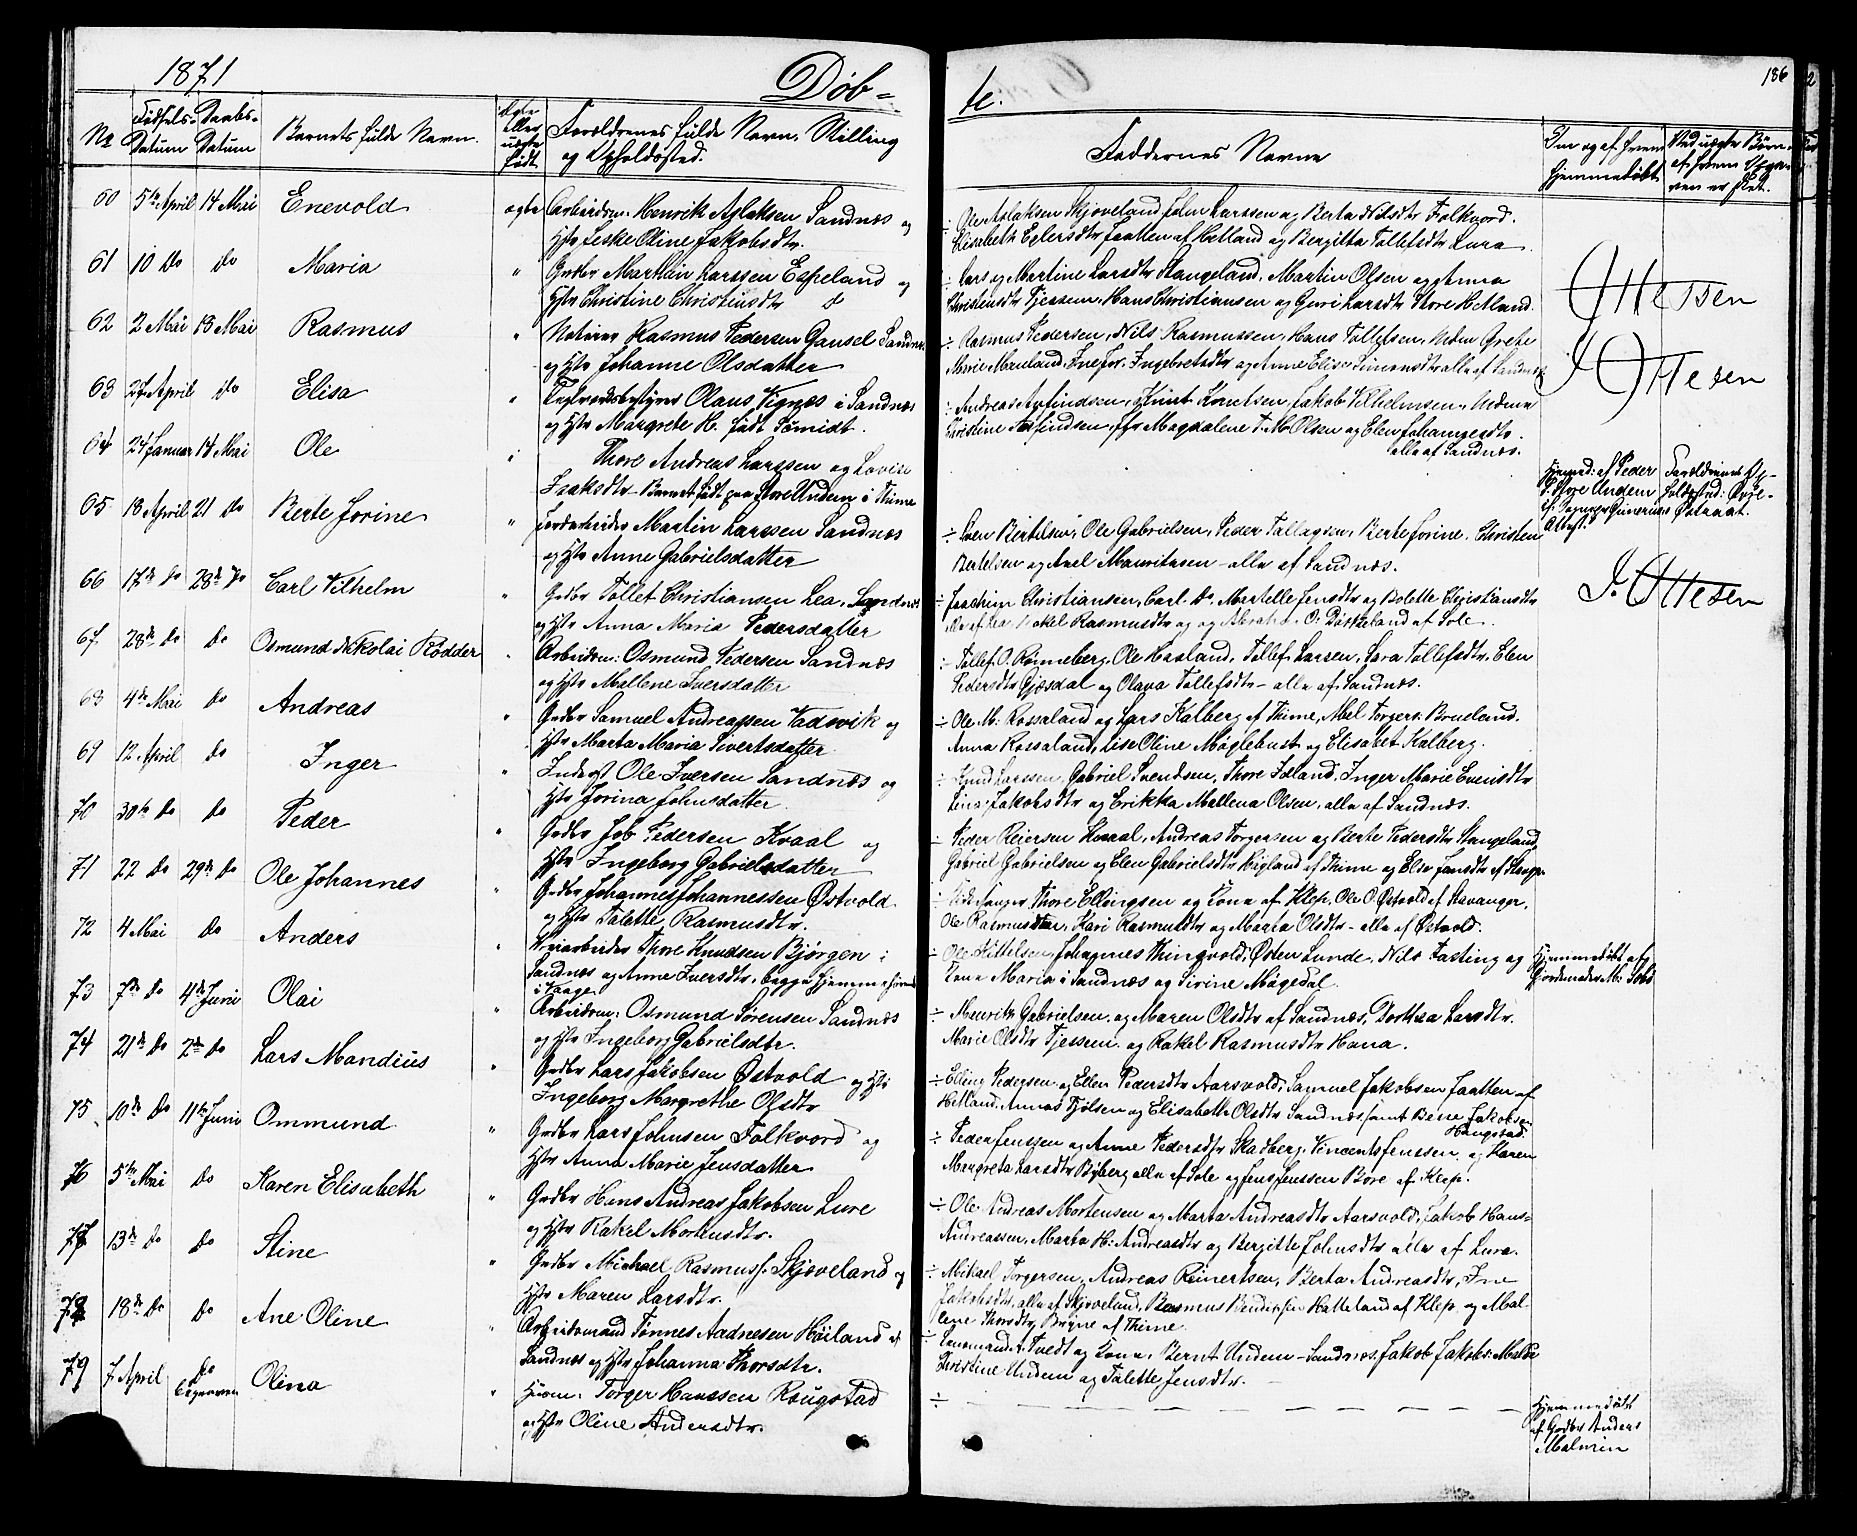 1871
Døb=
te.
186
No
Fødsels-
Datum
Daabs-
Datum
Barnets fulde Navn.
Ægte
eller
uægte
født
Forældrenes fulde Navn, Stilling
og Opholdssted.
Faddernes Navne
Om og af hvem
hjemmedøbt
60 5te April 14 Mai Enevold ægte Arbeidsm: Henrik Aslaksen Sandnæs og
Hstr Jeske Oline Jakobsdtr.
÷ Ole Aslaksen Skjøveland, John Larssen og Berta Nilsdtr Folkvord.
Elisabeth Eilersdtr Jaatten af Hetland og Bergitta Tollefsdtr Lura
61 10 Do do Maria " Grdbr Marthin Larssen Espeland og
Hstr Christine Christiusdtr d
÷ Lars og Martine Larsdtr Stangeland, Martin Olsen og Anna
Christensdtr Tjessem, Hans Christiansen og Guri Larsdtr Store Hetland.
62 2 Mai 13 Mai Rasmus " Rasmus Pedersen Gausel Sandnæs
og Hstr Johanne Olsdatter
÷ Rasmus Pedersen, Nils Rasmussen, Hans Tollefsen, Grete
Marie Maneland, Ingebretsdtr og Anne Elise Simonsdtr alle af Sandnæs
63 27 April do Elisa " Teglværksbestyrer Olaus Vignæs i Sandnæs
og Hstr Margrete H. født Smidt.
÷ Andreas Arfindsen, Knut Knutsen, Jakob Vilhelmsen,
Christine Arfindsen, Magdalene T. M. Olsen og Elen Johannesdtr.
alle af Sandnæs.
64 24 Januar 14 Mai Ole " Thore Andreas Larssen og Lovise
Isaksdtr Barnet født paa Store Undem i Thime
af Peder
Store Undem
Attest.
Forældrenes Op-
holdssted:
65 18 April 21 Do Berte Jorine " Martin Larssen Sandnæs
og Hstr Anne Gabrielsdatter
÷ Sven Bertelsen, Ole Gabrielsen, Peder Tallagsen, Berte Jorine Christen
Bertelsen og Axel Mauritssen - alle af Sandnæs.
66 17de Do 28de Do Carl Vilhelm " Grdbr Tollet Christiansen Lea, Sandnæs
og Hstr Anna Maria Pedersdatter
÷ Joachim Christiansen, Carl Do, Martelle Jensdtr og Bolette Christiansdtr
Rakel Rasmusdtr og af Sole.
67 28de Do Do Osmund Nikolai Rødder " Arbeidsm: Osmund Pedersen Sandnæs
og Hstr Mallene Iversdatter
÷ Tollef O. Rønneberg, Ole Haaland, Tollef Larsen, Sara Tollefsdtr, Elen
Pedersdtr Gjesdal og Olava Tollefsdtr - alle af Sandnæs.
68 4de Mai do Andreas " Grdbr Samuel Andreassen Vadsvik og
Hstr Marta Maria Sivertsdatter
÷ Ole M. Rossaland og Lars Kalberg af Thime, Abel Torgers: Brueland.
Anna Rossaland, Lise Oline Møglebust og Elisabet Kalberg.
69 12 April do Inger " Inderst Ole Iversen Sandnæs og
Hstr Jorina Johnsdatter.
÷ Knud Larssen, Gabriel Svendsen, Thore Idland, Inger Marie Evensdtr
Lina Jakobsdtr og Erikka Mallena Olsen, alle af Sandnæs.
70 30te Do do Peder " Grdbr Job Pedersen Kvaal og
Hstr Ingeborg Gabrielsdatter
÷ Peder Reiersen Kvaal, Andreas Torgersen og Berte Pedersdtr Stangeland,
Gabriel Gabrielsen og Elen Gabrielsdtr Høiland af Thime og Else Jensdtr af Stange-
71 22 Do 29de Do Ole Johannes " Grdbr Johannes Johannessen Østvold
og Hstr Talette Rasmusdtr.
÷ Kirkesanger Thore Ellingsen og Kone af Klep, Ole O. Østvold af Stavanger,
Ole Rasmussen, Kari Rasmusdtr og Marta Olsdtr - alle af Østvold.
72 4 Mai do Anders " Thore Knudsen Bjørgen i
Sandnæs og Anne Iversdtr, begge hjemmehørende
i Vaage
÷ Ole Kittelsen, Johannes Thingvold, Østen Lunde, Nils Fasting og
Kone Maria i Sandnæs og Sirine Møgedal.
Hjemmedøbt af
Gjordemoder M:
73 7de Do 4de Juni Olai " Arbeidsm: Osmund Sørensen Sandnæs
og Hstr Ingeborg Gabrielsdtr.
÷ Henrik Gabrielsen og Maren Olsdtr af Sandnæs, Dorthea Larsdtr.
Marie Olsdtr Tjessem og Rakel Rasmusdtr Hana.
74 21de Do 2den Do Lars Mandius " Grdbr Lars Jakobsen Østvold og Hstr
Ingeborg Margrethe Olsdtr
÷ Elling Pedersen og Ellen Pedersdtr Aarsvold, Samuel Jakobsen Jaatten af
Hetland, Annas Fjølsen og Elisabeth Olsdtr Sandnæs samt Bene Jakobsen
Haugstad.
75 10de Do 11te Juni Ommund " Grdbr Lars Johnsen Folkvord og
Hstr Anna Marie Jensdatter
÷ Peder Jenssen og Anne Pedersdtr Skadberg, Vincents Jenssen og Karen
Margreta Larsdtr Byberg alle af Sole og Jens Jenssen Bore af Klep.
76 5te Mai Do Karen Elisabeth " Grdbr Hans Andreas Jakobsen Lure
og Hstr Rakel Mortensdtr.
÷ Ole Andreas Mortensen og Marta Andreasdtr Aarsvold, Jakob Hans-
Andreassen, Marta H: Andreasdtr og Bergitte Johnsdtr alle af Lura.
77 13de Do Do Stine " Grdbr Michael Rasmuss: Skjøveland og
Hstr Maren Larsdtr.
÷ Mikael Torgersen, Andreas Reinertsen, Berta Andreasdtr, Ine
Jakobsdtr, alle af Skjøveland, Rasmus Hatteland af Klep og Mal-
lene Thorsdtr Bryne af Thime.
78 18de Do Do Ane Oline " Arbeidsmand Tønnes Aadnesen Høiland af
Sandnæs og Hstr Johanna Thorsdtr.
÷ Lensmand A. Tvedt og Kone, Bernt Undem - Sandnæs, Jakob Jakobs: Malde
Christine Undem og Talette Jensdtr.
79 7 April Do Olina " Huusm: Torger Hanssen Raugstad
og Hstr Oline Andersdtr.
÷
Hjemmedøbt
af Grdbr Anders
Malmin